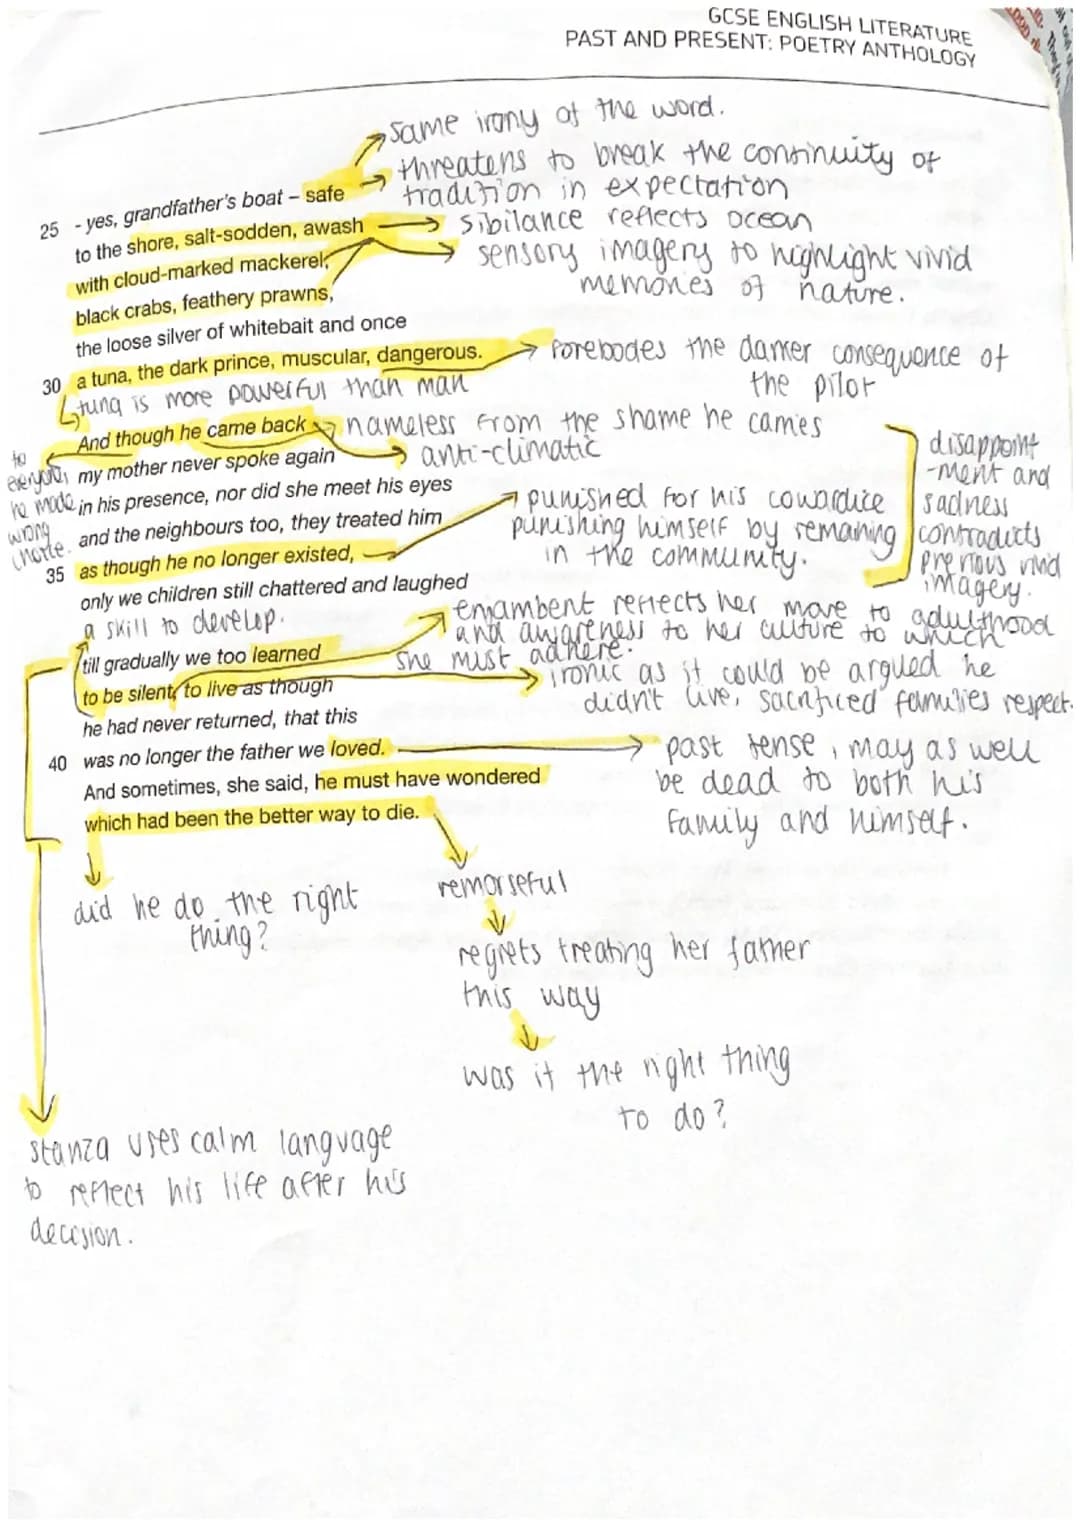 GCSE ENGLISH LITERATURE
PAST AND PRESENT: POETRY ANTHOLOGY
same irony of the word.
threatens to break the continuity of
tradition in expectation
25 - yes, grandfather's boat – safe
to the shore, salt-sodden, awash
sibilance reflects ocean
with cloud-marked mackerel,
sensory imagery to highlight vivid
memories of nature.
black crabs, feathery prawns,
the loose silver of whitebait and once
30 a tuna, the dark prince, muscular, dangerous.
forebodes the darker consequence of
the pilot
tuna is more powerful than man
And though he came back
nameless from the shame he carries
anti-climatic
to
everyone,
he made
wrong
choice.
my mother never spoke again
in his presence, nor did she meet his eyes
and the neighbours too, they treated him
35 as though he no longer existed,
punished for his cowardice
punishing himself by remaning
in the community.
disappoint
-ment and
sadness
contradicts
previous vivid
imagery.
only we children still chattered and laughed
a skill to develop.
enjambent reflects her move to adulthood
and awareness to her culture to which
she must adhere.
till gradually we too learned
to be silent, to live as though
ironic as it could be argued he
didn't live, sacrificed families respect.
he had never returned, that this
40 was no longer the father we loved.
past tense, may as well
be dead to both his
family and himself.
And sometimes, she said, he must have wondered
which had been the better way to die.
did he do the right
thing?
remorseful
regrets treating her father
this way
was it the right thing
to do?
stanza uses calm language
to reflect his life after his
decision.